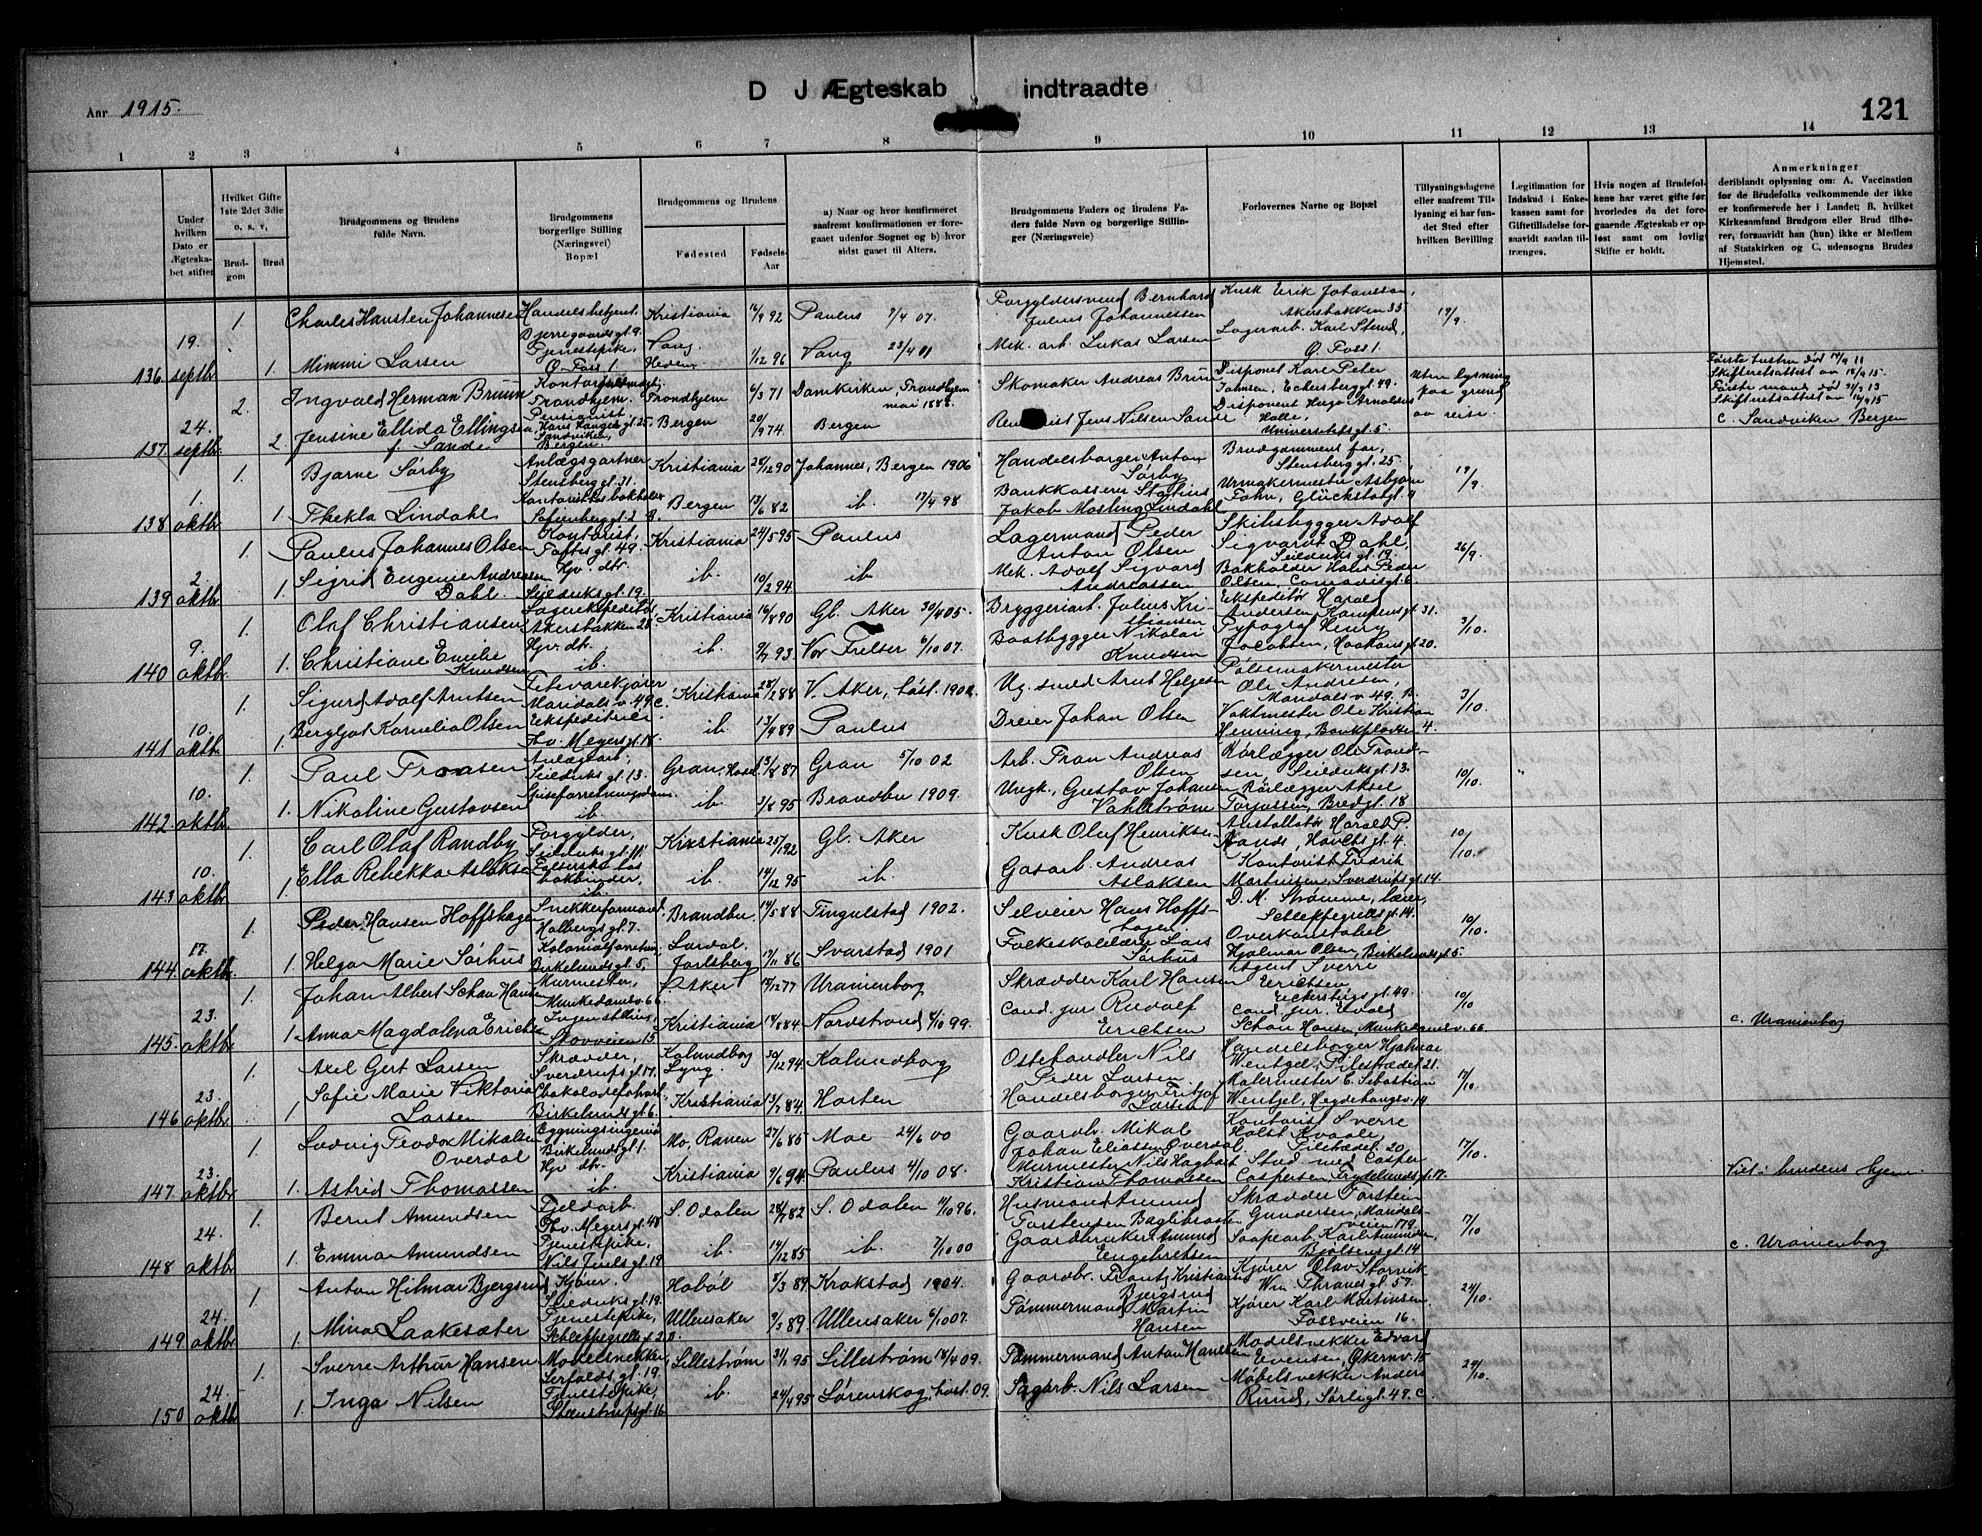 D J Ægteskab indtraadte
Aar 1915.
121
1 2 3 4 5 6 7 8 9 10 11 12 13 14
Under hvilken Dato er Ægteskabet stiftet
Hvilket Gifte 1ste 2det 3die o. s. v,
Brudgom
Brud
Brudgommens og Brudens fulde Navn.
Brudgommens borgerlige Stilling (Næringsvei) Bopæl
Brudgommens og Brudens
Fødested
Fødsels-Aar
a) Naar og hvor konfirmeret saafremt konfirmationen er foregaaet udenfor Sognet og b) hvor sidst gaaet til Alters.
Brudgommens Faders og Brudens Faders fulde Navn og borgerlige Stillinger (Næringsveie)
Forlovernes Navne og Bopæl
Tillysningsdagene eller saafremt Tillysning ei har fundet Sted efter hvilken Bevilling
Legitimation for Indskud i Enkekassen samt for Giftetilladelse forsaavidt saadan tiltrænges.
Hvis nogen af Brudefolkene har været gifte før hvorledes da det foregaaende Ægteskab er opløst samt om lovligt Skifte er holdt.
Anmerkninger
deriblandt oplysning om: A. Vaccination for de Brudefolks vedkommende der ikke er konfirmerede her i Landet; B. hvilket Kirkesamfund Brudgom eller Brud tilhører, forsaavidt han (hun) ikke er Medlem af Statskirken og C, udensogns Brudes Hjemsted.
136 19. septb. 1. Charles Hansten Johannesen Handelsbetjent. Bjerregaardsgt. 9. Kristiania 92 Paulus 7/4 07. Forgyldersvend Bernhard Julius Johannessen Kusk Erik Johansson, Akersbakken 35 19/9.
1. Mimmi Larsen Tjenestepike, Ø. Foss 1. Vang, Hedem. 1/12 96 Vang 23/4 11 Mek. arb. Lukas Larsen Lagerarb. Karl Sterud, Ø. Foss 1.
137. 24. septb. 2. Ingvald Herman Bruun Kontorfuldmægt. Trondhjem. Trondhjem 6/3 71 Domkirken, Trondhjem mai 1886. Skomaker Andreas Bruun Disponent Kare Peter Johnsen, Eckersberggt. 49. Uten lysning paa grund av reise. Første hustru død 14/9 11 Skifteretsattest av 18/9 15.
2 Jensine Ellida Ellingsen, f. Sande Pensionist, Hans Haugesgt. 25, Sandviken, Bergen Bergen 20/9 74. Bergen Jens Nilsen Sande Disponent Hugo Arnoldus Holle, Universitetsgt. 5 Første mand død 21/9 13 Skifteretsattest av 16/9 15 c. Sandviken Bergen
138 1. oktbr. 1. Bjarne Sørby Anlægsgartner Stensberggt. 31. Kristiania 28/12 90 Johannes, Bergen 1906 Handelsborger Anton Sørby Brudgommens far, Stensberggt. 25. 19/9.
1. Thekla Lindahl Sofienberggt. 2 B. Bergen 13/6 82 ib. 17/4 98 Bankkasserer Statius Jakob Mosling Lindahl Urmakermester Asbjørn Fahn, Glückstadgt. 9
139 2. oktb. 1. Paulus Johannes Olsen Kontorist, Toftesgt. 49. Kristiania 24/5 95 Paulus Lagermand Peder Anton Olsen Skibsbygger Adolf Sigvardt Dahl, Seilduksgt. 19. 26/9.
1. Sigrid Eugenie Andreassen Dahl. Hjv. dtr. Seilduksgt. 19. ib. 10/2 94. ib Mek. Adolf Sigvard Andreassen Bokholder Hans Peder Olsen, Conradisgt. 6.
140 9. oktbr. 1. Olaf Christiansen Lagerekspeditør Akersbakken 28. Kristiania 16/8 90 Gl. Aker 30/4 05. Bryggeriarb. Julius Kristiansen Ekspeditør Harald Andersen, Kampensgt. 31. 3/10.
1. Christiane Emilie Knudsen Hjv. dtr. ib. ib. 9/7 93. Vor Frelser 6/10 07. Baatbygger Nikolai Knudsen Typograf Henry Jacobsen, Haakonsgt. 20.
141 10. oktbr. 1. Sigurd Adolf Arntsen Fetevarekjører Maridalsv. 49 c. Kristiania 28/2 88 V. Aker, høst. 1902. Vg. smed Arnt Helgesen Pølsemakermester Ole Andresen, Maridalsv. 49. B. 3/10.
1. Bergljot Kornelia Olsen Ekspeditrice. Thv. Meyersgt. 18. ib. 13/4 89 Paulus Dreier Johan Olsen Vaktmester Ole Kristian Henning, Bankpladsen 4.
142. 10. oktbr. 1. Paul Fransen Anlægsarb. Seilduksgt. 13. Gran, Hadel. 23/8 87 Gran 5/10 02 Arb. Fran Andreas Olsen Rørlægger Ole Trondsen, Seilduksgt. 13. 10/10.
1. Nikoline Gustavsen Spiseforretningsdame. ib. ib. 3/8 95 Brandbu 1909. Ungk., Gustav Johansen Vahlstrøm Rørlægger Aksel Torjussen, Bredgt. 18
143 10. oktbr. 1. Carl Olaf Randby Forgylder, Seilduksgt. 11. Kristiania 25/1 92 Gl. Aker Kusk Oluf Henriksen Installatør Harald P. Rands, Hauchsgt. 4. 10/10.
1. Ella Rebekka Aslaksen bokbinder, ib. ib. 14/12 95 ib. Gasarb. Andreas Aslaksen Kontorist Fredrik Martinsen, Sverdrupsgt. 14.
144. 17. oktbr. 1. Peder Hansen Hoffshagen Snekkerformand Holbergsgt. 7. Brandbu. 14/5 88 Tingelstad 1902. Selveier Hans Hoffshagen D. M. Strømme, lærer, Schleppegrellsgt. 14. 10/10.
1. Helga Marie Sørhus Kolonialforretn. Birkelundsgt. 5. Lardal, Jarlsberg 19/11 86 Svarstad 1901 Folkeskolelærer Lars Sørhus Overkonstabel Hjalmar Olsen, Birkelundsgt. 5.
145. 23. oktbr. 1. Johan Albert Schau Hansen Murmester, Munkedamsv. 66. Aker 12 77 Uranienborg Skrædder Karl Hansen Agent Sverre Erichsen, Eckersbergsgt. 49. 10/10
1 Anna Magdalena Erichsen Ingen stilling, Skovveien 15 Kristiania 18/8 84. Nordstrand 8/10 99. Cand. jur Rudolf Erichsen Cand. jur. Evald Schau Hansen, Munkedamsv. 66. c. Uranienborg
146 23. oktbr. 1. Axel Gert Larsen Skrædder, Sverdrupsgt. 17. Kalundborg Lyng. 30/12 94. Kalundborg Ostehandler Nils Peder Larsen. Handelsborger Hjalmar Wentzel, Pilestrædet 21. 17/10.
1 Sofie Marie Viktoria Larsen Birkelundsgt. 6. Kristiania 13/7 84. Horten Handelsborger Fritjof Larsen Malermester C. Sebastian Wentzel, Hegdehaugsv. 14
147. 23. oktbr. 1. Ludvig Teodor Mikalsen Overdal Bygningsingeniør Birkelundsgt. 1. Mo, Ranen 27/6 85 Moe 24/6 00 Gaardbr. Mikal Johan Eliassen Overdal Kontorist Sverre Holst Kvaale, Pilestrædet 20. 17/10.
1. Astrid Thomassen Hjv. dtr. ib. Kristiania 9/6 94. Paulus 4/10 08. Murmester Nils Hagbart Kristian Thomassen Stud. med Casper Caspersen, Frydenlundsgt. 17. Viet i brudens hjem.
148 24. oktbr. 1. Bernt Amundsen Thv. Meyersgt. 48 S. Odalen 28/7 82 S. Odalen 1/10 96. Husmand Amund Torstensen Baglibraaten Skrædder Torstein Gundersen, Maridalsveien 179. 17/10
1. Emma Amundsen Tjenestepike, Nils Juelsgt. 19 ib. 14/12 85 ib. 7/10 00 Gaardbruker Amund Engebretsen Saapearb. Karl Amundsen, Bjølsensgt. 14 c. Uranienborg
149 24. oktbr. 1. Anton Hilmar Bjergsrud Kjører. Seilduksgt. 19. Hobøl 5/3 89 Krakstad 1904. Gaardbr. Frantz Kristiansen Bjergsrud Kjører Olav Storvik Win. Thranesgt. 57. 24/10.
1. Mina Laakesæter Tjenestepike, Schleppegrellsgt. 2 B. Ullensaker 9/3 89 Ullensaker 6/10 07. Tømmermand Martin Hansen Kjører Karl Martinsen, Fossveien 16.
150 24. oktbr. 1. Sverre Arthur Hansen Møbelsnekker Serfaldsgt. 19. Lillestrøm 31/1 95 Lillestrøm 18/4 09. Tømmermand Anton Hansen Modelsnekker Edvard Evensen, Økernv. 15 24/10.
1. Inga Nilsen Tjenestepike, Steenstrupsgt. 16 ib. 24/4 95 Lørenskog, høst. 09. Sagarb. Nils Larsen Møbelsnekker Anders Ruud, Sørligt. 48. C.